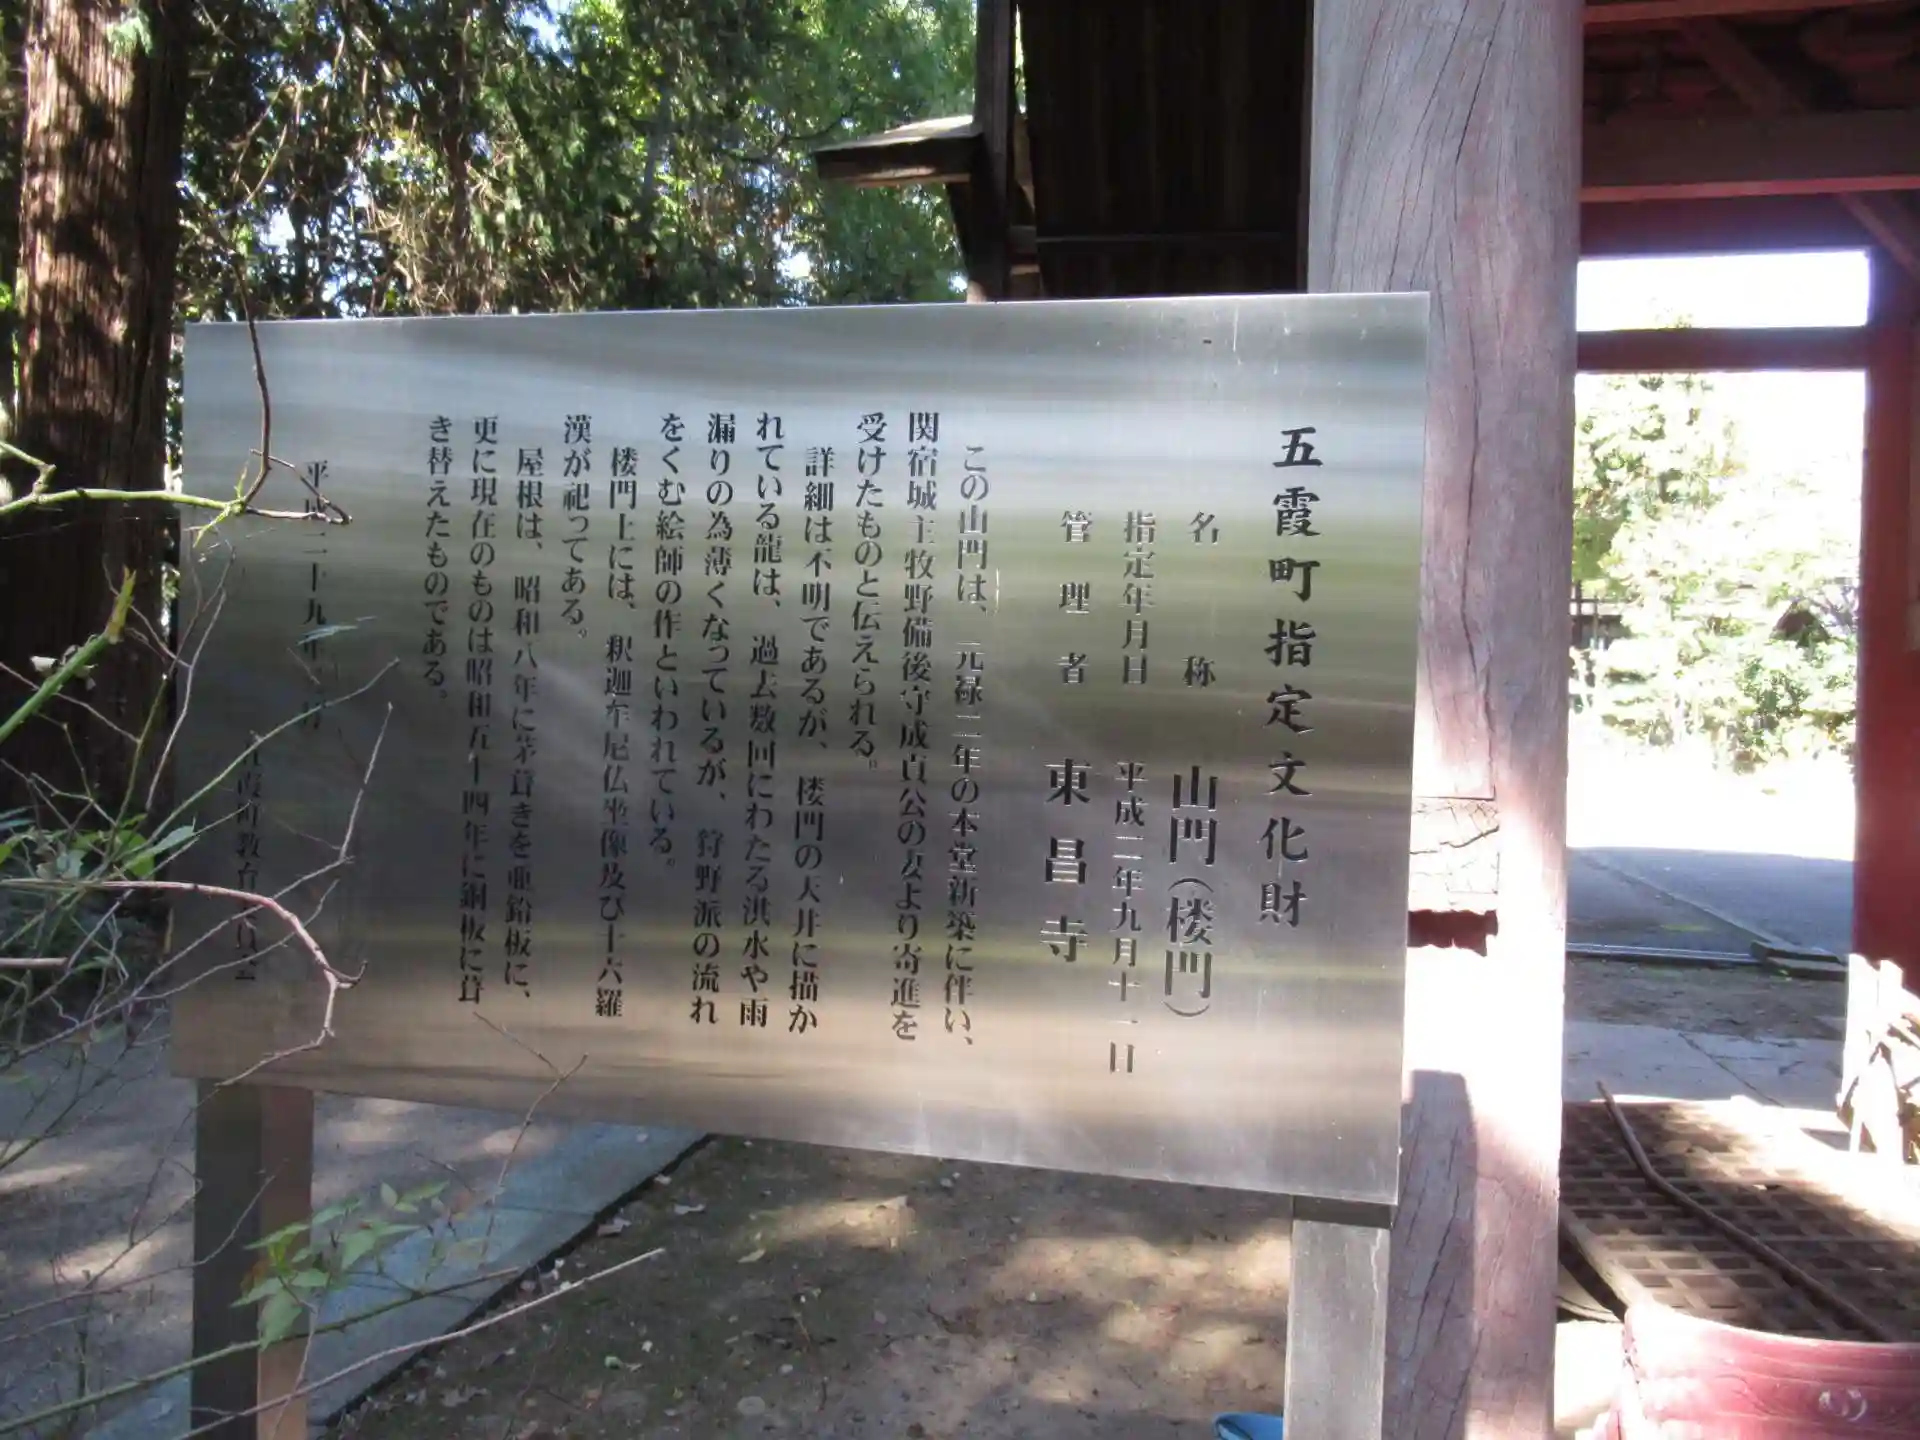 五霞町指定文化財
名称 山門(楼門)
指定年月日 平成二年九月十一日
管理者 東昌寺
この山門は、元禄二年の本堂新築に伴い、
関宿城主牧野備後守成貞公の妻より寄進を
受けたものと伝えられる。
詳細は不明であるが、楼門の天井に描か
れている龍は、過去数回にわたる洪水や雨
漏りの為薄くなっているが、狩野派の流れ
をくむ絵師の作といわれている。
楼門上には、釈迦牟尼仏坐像及び十六羅
漢が祀ってある。
屋根は、昭和八年に茅葺きを亜鉛板に、
更に現在のものは昭和五十四年に銅板に葺
き替えたものである。
平成二十九年 月
五霞町教育委員会